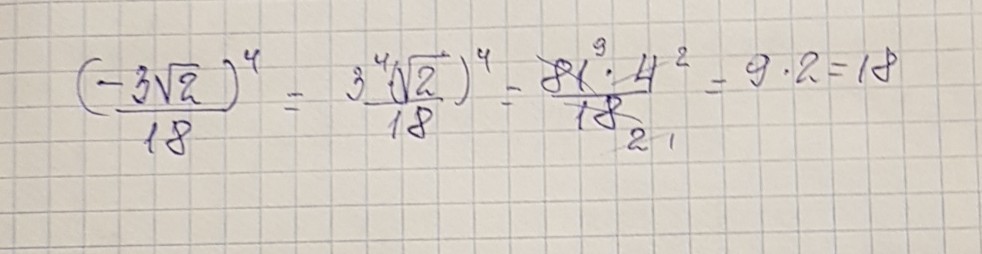 (-3√2)⁴/18 = 3⁴(√2)⁴/18 = 81⁹·4²/18₂₁ = 9·2=18